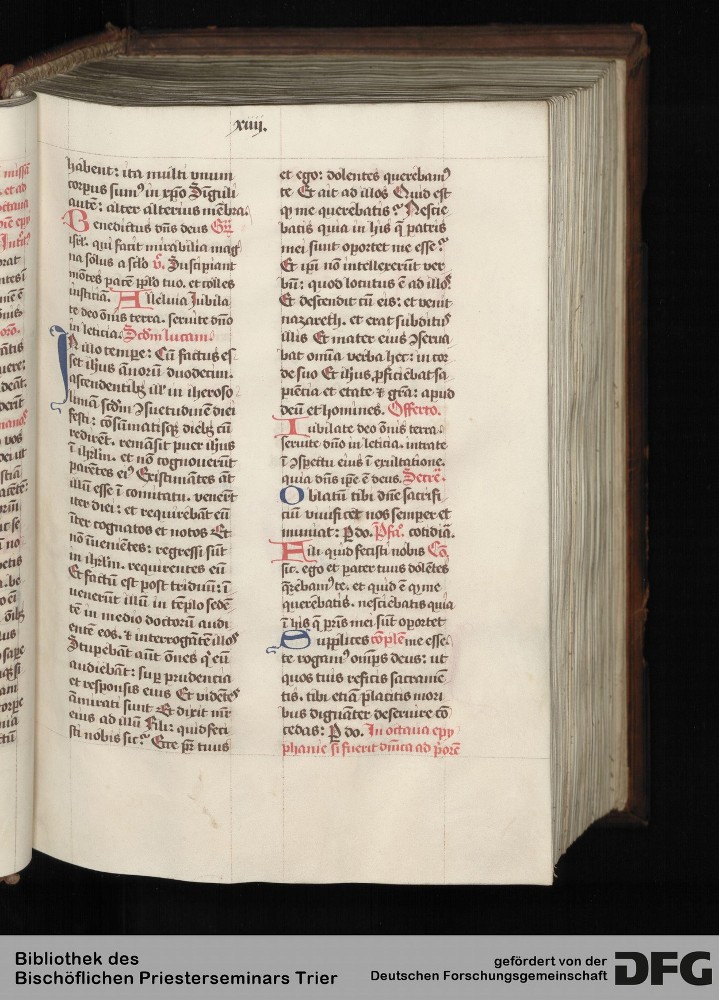 xiiij.
habent: ita multi vnum
corpus sumꝰ in xp̄o Singuli
autē: alter alterius mēbra.
Benedictus dn̄s deus Gr̄
isrl̓. qui facit mirabilia mag
na solus a sc̄lo v̄. Suscipiant
mōtes pacē pp̄lo tuo. et colles
iusticiā. Alleluia Iubila
te deo om̄is terra. seruite dn̄o
in leticia. Scdm̄ lucam.
In illo tempore: Cū factus es
set ih̄us annorū duodecim.
ascendentibꝫ ill̓ in iheroso
limā scdm̄ ꝯsuetudinē diei
festi: cōsūmatisqꝫ diebꝫ cū
redirēt. remāsit puer ih̄us
ī ihrl̄m. et nō cognouerūt
parētes eiꝰ Existimātes āt
illū esse ī comitatu. venerūt
iter diei: et requirebāt eū
īter cognatos et notos Et
nō īueniētes: regressi sūt
in ihrl̄m. requirentes eū
Et factū est post triduū: ī
uenerūt illū in tēplo sedē
tē in medio doctorū audi
entē eos. ⁊ interrogātē illoꝰ
Stupebāt aūt om̄es q̇ eū
audiebāt: sup̄ prudencia
et responsis eius Et vidētes
āmirati sunt Et dixit mr̄
eius ad illū Fili: quid feci
sti nobis sic? Ecce pr̄ tuus
et ego: dolentes querebamꝰ
te Et ait ad illos Quid est
ꝙ me querebatis? Nescie
batis quia in his q̄ patris
mei sunt oportet me esse?
Et ipi̅ nō intellexerūt ver
bū: quod locutus ē ad illos
Et descendit cū eis: et venit
nazareth. et erat subditus
illis Et mater eius ꝯserua
bat om̄ia verba hec: in cor
de suo Et ih̄us ꝓficiebat sa
piēcia et etate ⁊ gr̄a: apud
deū et homines. Offerto.
Iubilate deo om̄is terra.
seruite dn̄o in leticia. intrate
ī ꝯspectu eius ī exultatione.
quia dn̄s ip̄e ē deus. Secre̅.
Oblatū tibi dn̄e sacrifi
ciū viuificet nos semper et
muniat: P̱ do. Prefa̅. cotidiā.
Fili quid fecisti nobis Cō.
sic. ego et pater tuus dolētes
q̄rebamꝰ te. et quid ē ꝙ me
querebatis. nesciebatis quia
ī his q̄ pr̄is mei sūt oportet
Supplices cōple̅ me esse.
te rogamꝰ om̄ps deus: ut
quos tuis reficis sacramē
tis. tibi etiā placitis mori
bus dignāter deseruire cō
cedas: P̱ do. In octaua epy
phanie si fuerit dn̄ica ad p̄orē
Bibliothek des
Bischöflichen Priesterseminars Trier
gefördert von der
Deutschen Forschungsgemeinschaft
DFG